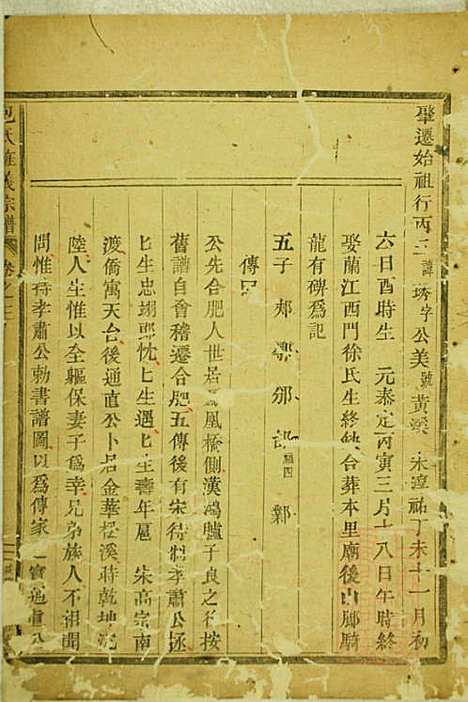 肇遷始祖行丙三諱琇字公美號黃溪 宋淳祐丁未十一月初
六日酉時生 元泰定丙寅三月十八日午時終
娶蘭江西門徐氏生終缺合葬本里廟後山郞騎
龍有碑爲記
五子 郟 鄢 邠 鄭
傳曰
公先合肥人世居鳳凰橋側漢鴻臚子良之後按
舊譜自會稽遷合肥五傳後有宋待制孝肅公拯
生忠翊郎忱生遇生壽年扈 宋高宗南
渡僑寓天台後通直公卜居金華橫溪時乾地沉
陸人生惟以全軀保妻子爲幸兄弟族人不相聞
問惟將孝肅公勅書譜圖以爲傳家寶
包氏
宗譜 卷之